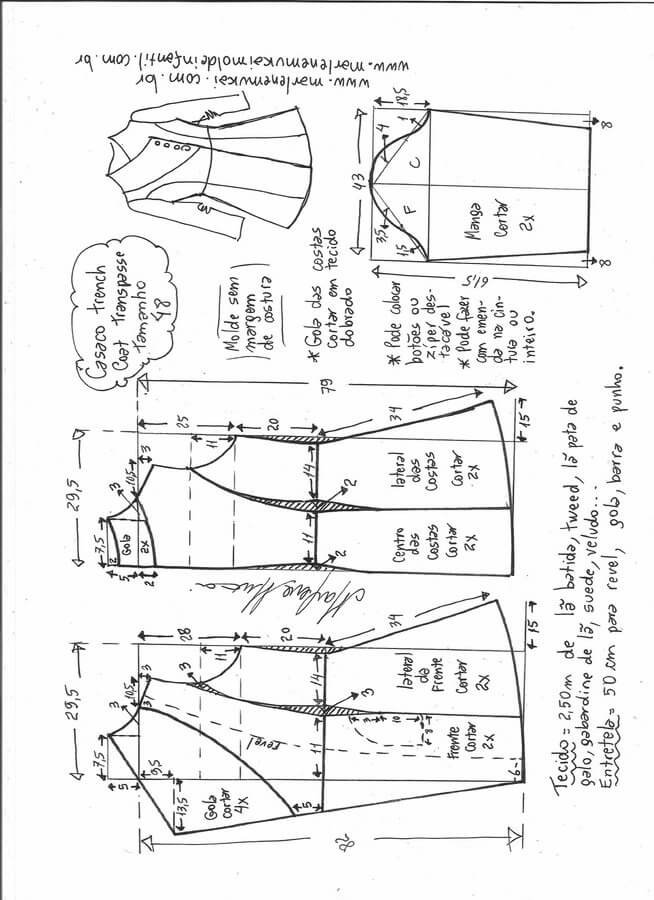 www.marlenemukaimoldeinfantil.com.br
www.marlenemukai.com.br
Casaco trench
Coat transpasse
tamanho
48
Molde sem
margem
de costura
* Gola das costas
cortar em tecido
dobrado
* Pode colocar
botões ou
zíper des-
tacável
* Pode fazer
com emen-
da na cin-
tura ou
inteiro.
43
18,5
4
1
3,5
1,5
F
C
Manga
Cortar
2x
61,5
8
8
29,5
7,5
3
10,5
3
2
5
2
Gola
2x
25
11
20
79
14
11
2
2
34
15
lateral
das
Costas
Cortar
2x
Centro
das
Costas
Cortar
2x
Marlene Mukai
29,5
7,5
3
10,5
3
3
5
9,5
13,5
28
11
20
3
revel
14
11
3
5
34
15
10
8
6
Gola
cortar
4x
lateral
da
Frente
Cortar
2x
Frente
Cortar
2x
Tecido = 2,50m de lã batida, tweed, lã pata de
galo, gabardine de lã, suede, veludo...
Entretela = 50 cm para revel, gola, barra e punho.